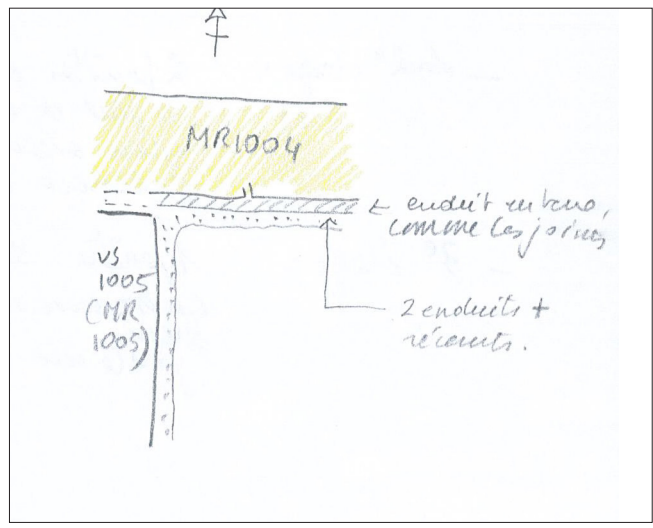 MR1004
enduit rubané,
comme les joints
US
1005
(MR
1005)
2 enduits +
récents.